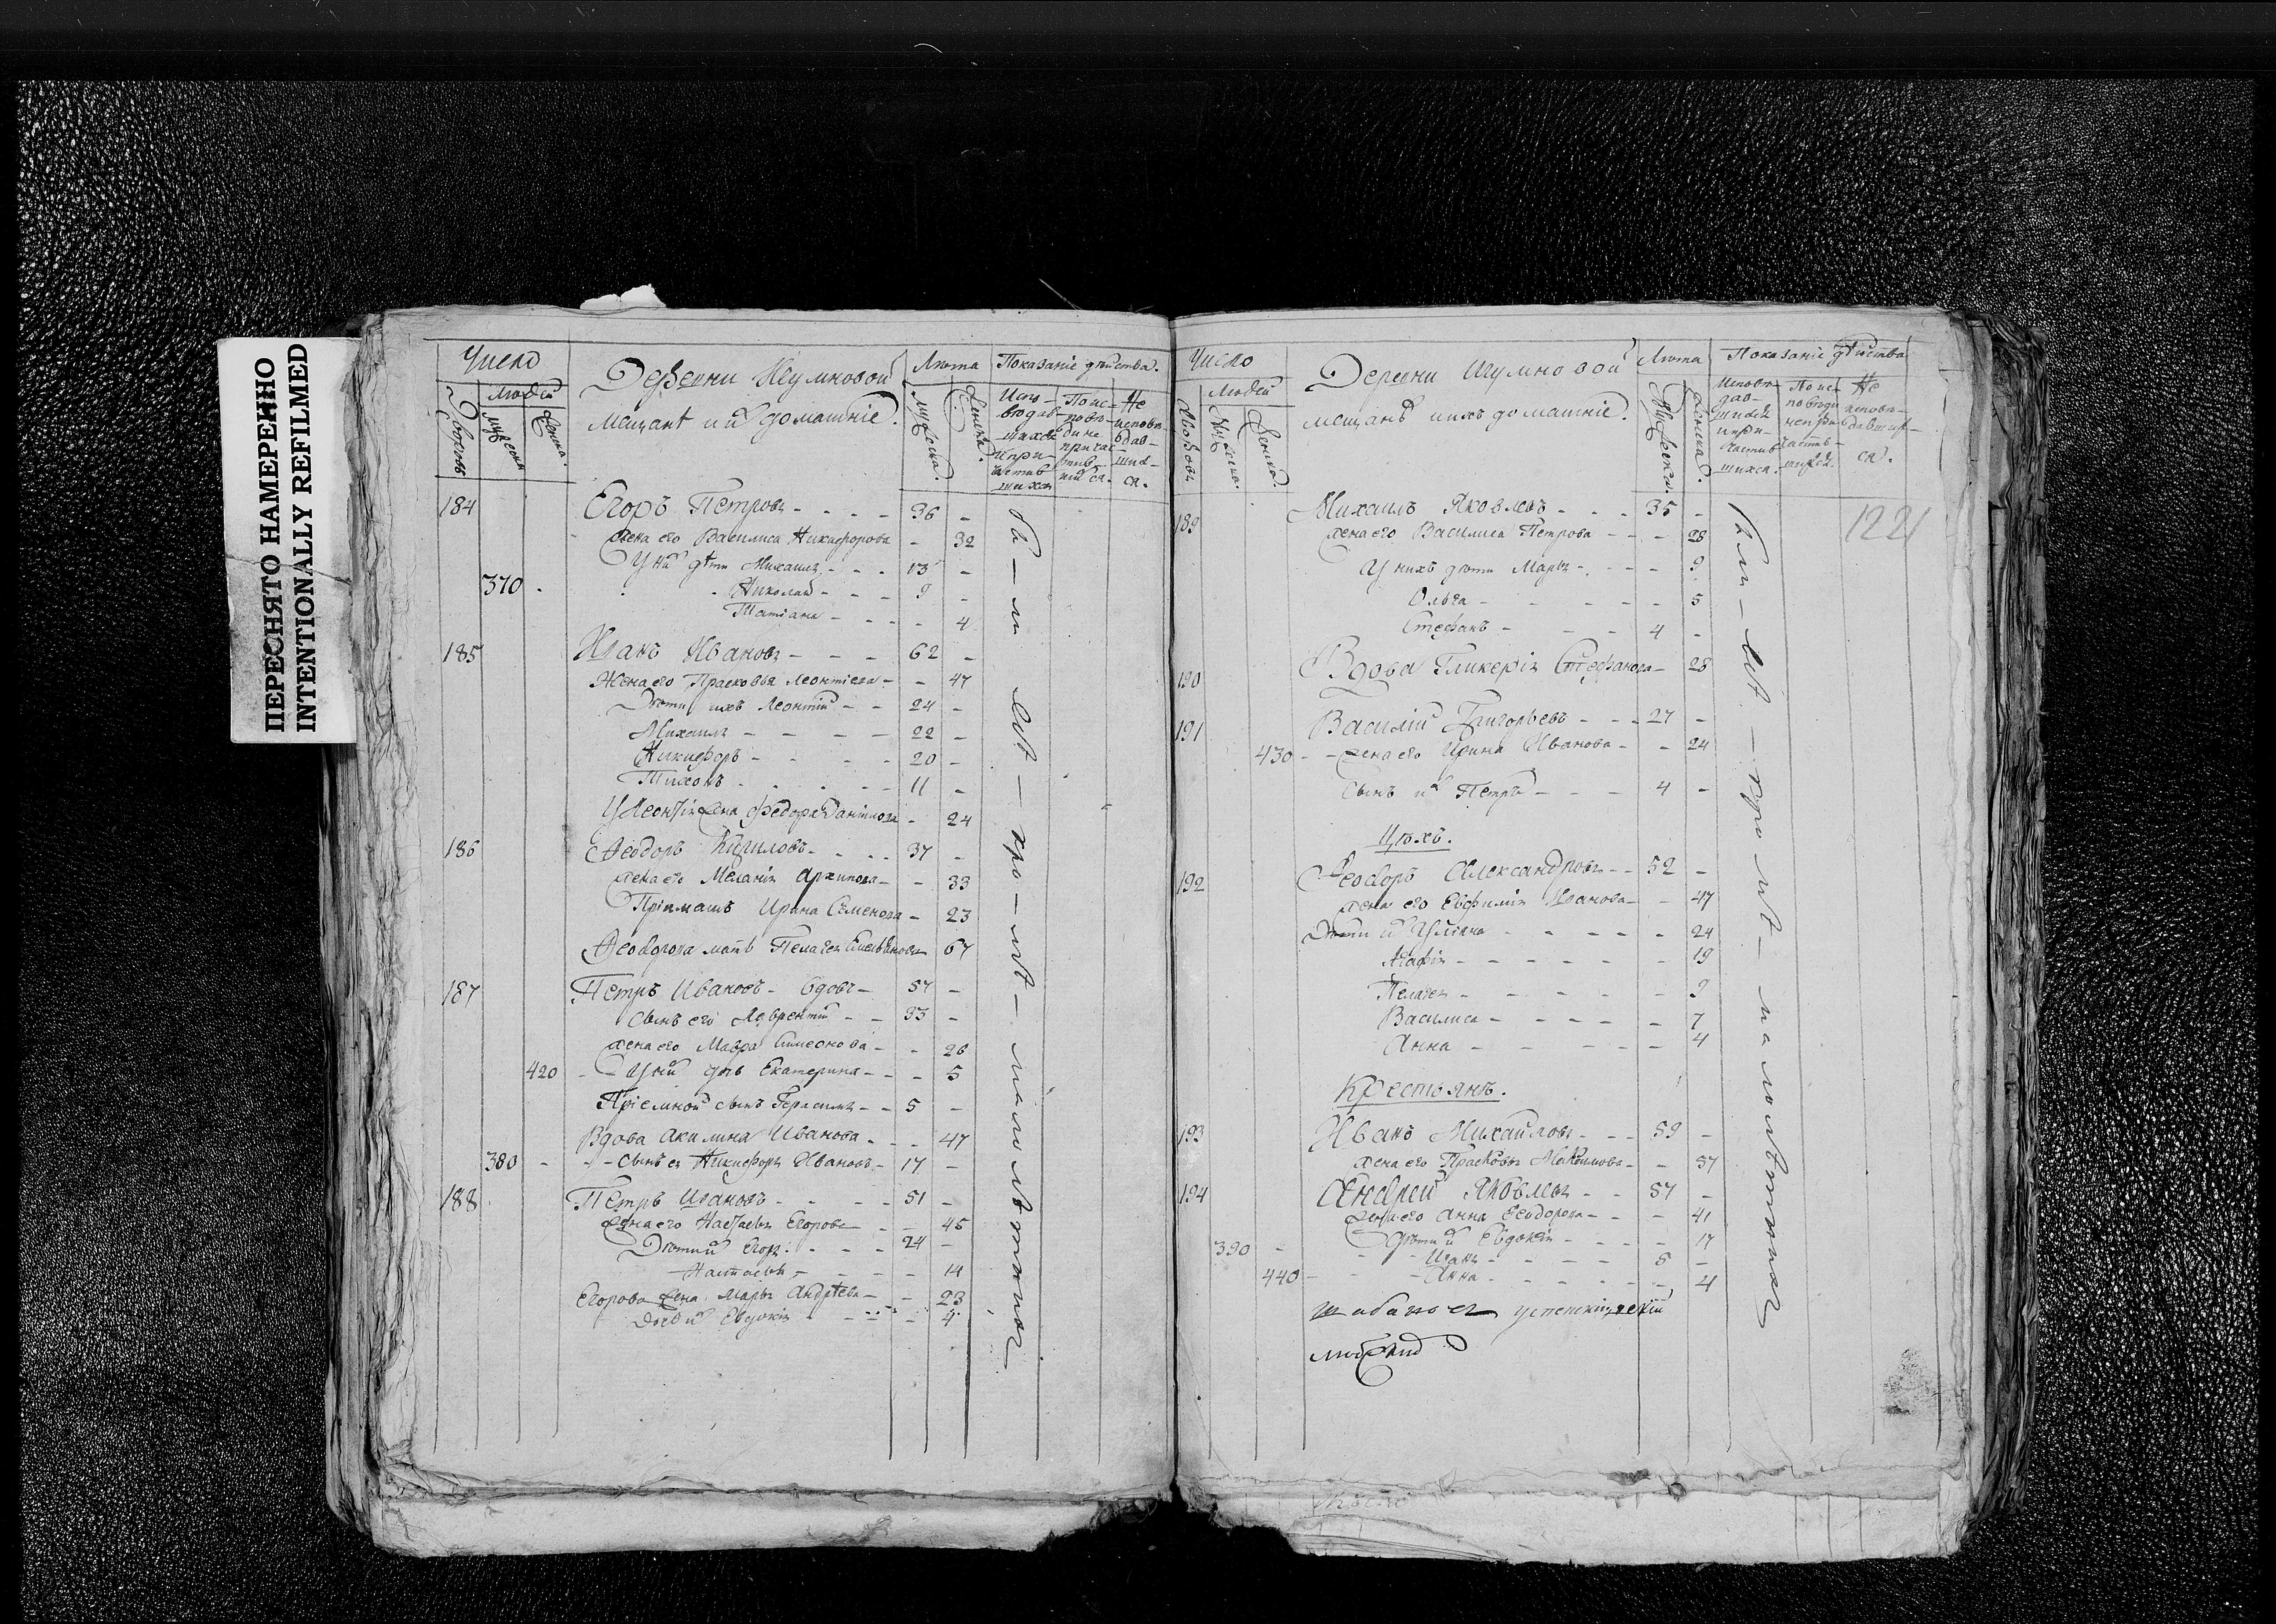 ПЕРЕСНЯТО НАМЕРЕННО
INTENTIONALLY REFILMED
Число
Людей
Дворовъ
мужеска
женска
Деревни Игумновой
мещанъ и ихъ домашніе.
Лѣта
мужеска
женска
Показаніе дѣйства.
Испо-
вѣдав-
шихся
и при-
частив
шихся
По ис-
повѣ-
ди не
причас-
тив-
шихся.
Не
исповѣ-
дав-
ших-
ся.
184 Егоръ Петровъ - - - - 36 -
жена его Василиса Никифорова - 32
У них дѣти Михаилъ - - - 13 -
370 - - Николай - - - 9 -
Татіана - - - - 4
185 Иванъ Ивановъ - - - 62 -
Жена его Прасковья Леонтіева - - 47
Дѣти ихъ Леонтій - - 24 -
Михаилъ - - - - 22 -
Никифоръ - - - - 20 -
Тихонъ - - - - 11 -
У Леонтія жена Федора Данилова - 24
186 Феодоръ Кириловъ - - - 37 -
жена его Меланія Архипова - - 33
Пріимашъ Ирина Семенова - 23
Феодорова мать Пелагея Емельянова 67
187 Петръ Ивановъ - вдовъ - 57 -
сынъ его Лаврентій - - 33 -
жена его Мавра Симеонова - - 26
420 - У них дочь Екатерина - - - 5
Пріемной сынъ Герасимъ - - 5 -
Вдова Акилина Иванова - - - 47
380 - - - сынъ ея Никифоръ Ивановъ - 17 -
188 Петръ Ивановъ - - - - 51 -
жена его Настасья Егорова - - 45
Дѣти их Егоръ - - - 24 -
Настасья - - - - 14
Егорова жена Марья Андрѣева - - 23
дочь их Евдокія - - - - 4
бы - ли всѣ - кро - мѣ - малолѣтныхъ
Число
Людей
Дворовъ
Мужеска
Женска
Деревни Игумновой
мещанъ и ихъ домашніе.
Лѣта
Мужеска
Женска
Показаніе дѣйства
Исповѣ-
дав-
шихся
и при-
частив
шихся.
По ис-
повѣди
не при-
частив-
шихся.
Не
исповѣ-
давших-
ся.
1221
189 Михаилъ Яковлевъ - - - 35 -
жена его Василиса Петрова - - - 28
У нихъ дѣти Марья - - - - 9
Ольга - - - - - 5
Стефанъ - - - 4 -
190 Вдова Гликерія Стефанова - 28
191 Василій Григорьевъ - - - 27 -
430 - - жена его Ирина Иванова - - 24
Сынъ их Петръ - - - 4 -
Цѣхъ.
192 Феодоръ Александровъ - - 52 -
жена его Евфимія Иванова - - 47
Дѣти их Улияна - - - - - 24
Агафія - - - - - - 19
Пелагея - - - - - 9
Василиса - - - - - 7
Анна - - - - - 4
Крестьянъ.
193 Иванъ Михайловъ - - - 59 -
жена его Прасковья Максимова - - 57
194 Андрей Яковлевъ - - 57 -
жена его Анна Феодорова - - - 41
Дѣти их Евдокія - - - - 17
390 - - - Иванъ - - - - 5 -
440 - - - Анна - - - - - 4
бы - ли - всѣ - кро мѣ - малолѣтныхъ